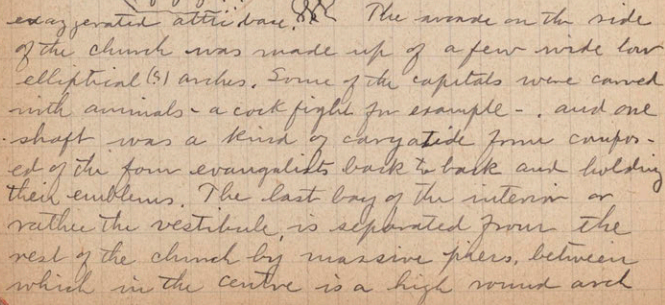 exaggerated attic base. The arcade on the side
of the church was made up of a few wide low
elliptical (?) arches. Some of the capitals were carved
with animals - a cock fight for example - . and one
shaft was a kind of caryatide from compos-
ed of the four evangalists back to back and holding
their emblems. The last bay of the interior or
rather the vestibule, is separated from the
rest of the church by massive piers, between
which in the centre is a high round arch